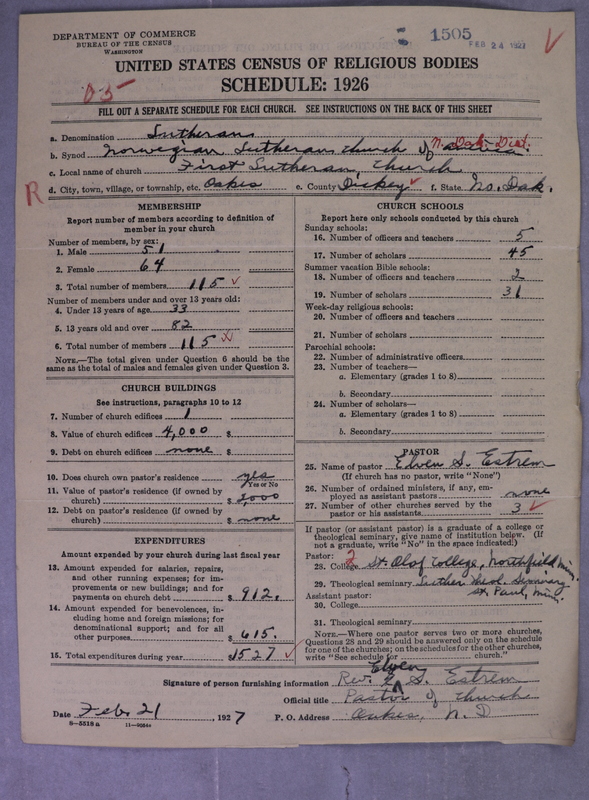 DEPARTMENT OF COMMERCE
BUREAU OF THE CENSUS
WASHINGTON
1505
FEB 24 1927
UNITED STATES CENSUS OF RELIGIOUS BODIES
SCHEDULE: 1926
FILL OUT A SEPARATE SCHEDULE FOR EACH CHURCH. SEE INSTRUCTIONS ON THE BACK OF THIS SHEET
a. Denomination Lutheran
N. Dak. Dist.
b. Synod Norwegian Lutheran church of america
c. Local name of church First Lutheran church
R
d. City, town, village, or township, etc. Oakes e. County Dickey f. State No. Dak.
MEMBERSHIP
Report number of members according to definition of
member in your church
Number of members, by sex:
1. Male 51
2. Female 64
3. Total number of members 115
Number of members under and over 13 years old:
4. Under 13 years of age 33
5. 13 years old and over 82
6. Total number of members 115
NOTE.—The total given under Question 6 should be the
same as the total of males and females given under Question 3.
CHURCH BUILDINGS
See instructions, paragraphs 10 to 12
7. Number of church edifices 1
8. Value of church edifices 4,000 $
9. Debt on church edifices none $
10. Does church own pastor's residence yes
Yes or No
11. Value of pastor's residence (if owned by
church) $ 2000
12. Debt on pastor's residence (if owned by
church) $ none
EXPENDITURES
Amount expended by your church during last fiscal year
13. Amount expended for salaries, repairs,
and other running expenses; for im-
provements or new buildings; and for
payments on church debt $ 912.
14. Amount expended for benevolences, in-
cluding home and foreign missions; for
denominational support; and for all
other purposes $ 615.
15. Total expenditures during year $1527
CHURCH SCHOOLS
Report here only schools conducted by this church
Sunday schools:
16. Number of officers and teachers 5
17. Number of scholars 45
Summer vacation Bible schools:
18. Number of officers and teachers 2
19. Number of scholars 31
Week-day religious schools:
20. Number of officers and teachers
21. Number of scholars
Parochial schools:
22. Number of administrative officers
23. Number of teachers—
a. Elementary (grades 1 to 8)
b. Secondary
24. Number of scholars—
a. Elementary (grades 1 to 8)
b. Secondary
PASTOR
25. Name of pastor Elven S. Estrem
(If church has no pastor, write "None")
26. Number of ordained ministers, if any, em-
ployed as assistant pastors none
27. Number of other churches served by the
pastor or his assistants 3
If pastor (or assistant pastor) is a graduate of a college or
theological seminary, give name of institution below. (If
not a graduate, write "No" in the space indicated:)
Pastor: 2
28. College St. Olaf College, Northfield Minn.
29. Theological seminary Luther Theol. Seminary
St. Paul, Minn.
Assistant pastor:
30. College
31. Theological seminary
NOTE.—Where one pastor serves two or more churches,
Questions 28 and 29 should be answered only on the schedule
for one of the churches; on the schedules for the other churches,
write "See schedule for church."
Elven
Signature of person furnishing information Rev. E. S. Estrem
Official title Pastor of church
Date Feb. 21, 1927 P. O. Address Oakes, N. D
8—5518 a